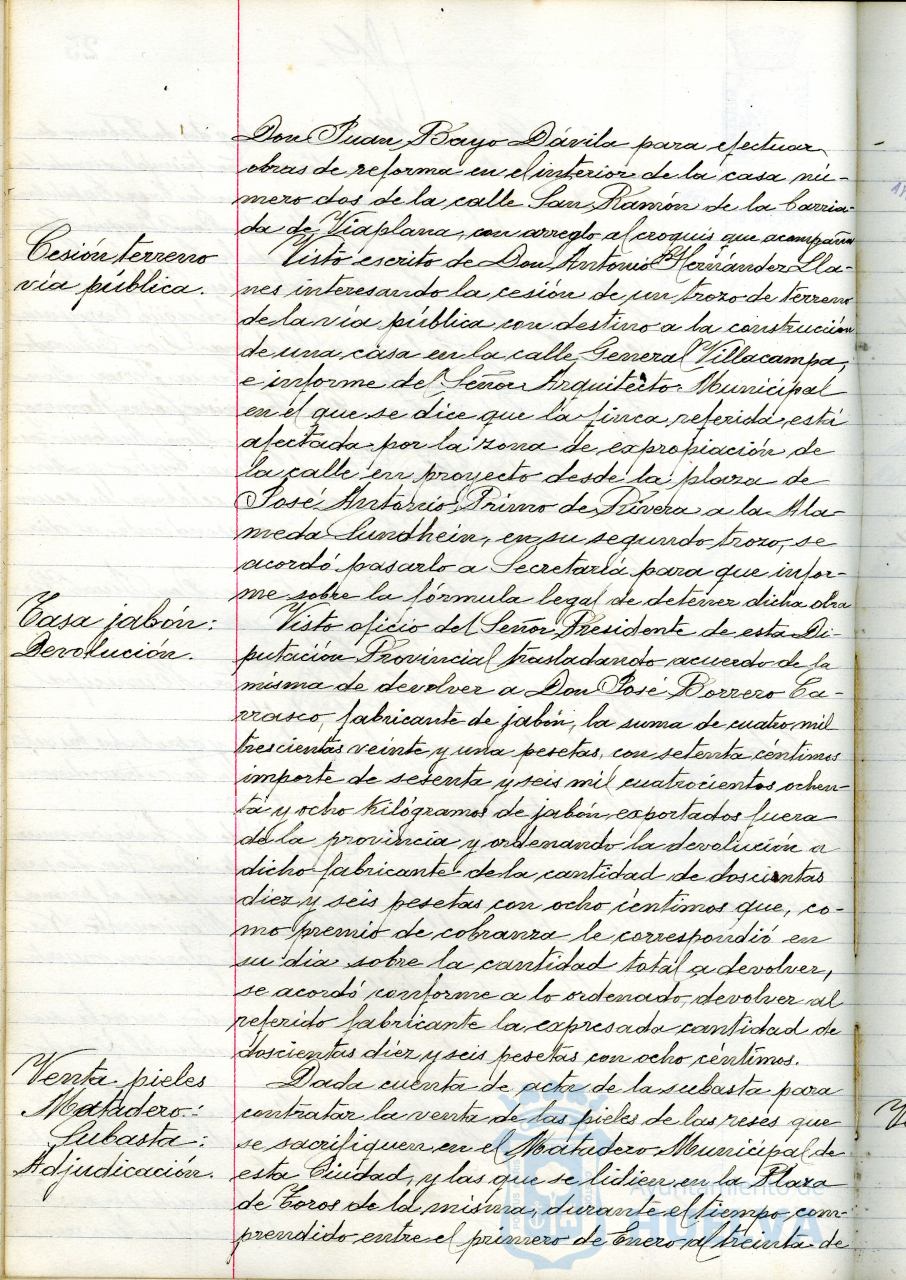 Don Juan Bayo Dávila para efectuar
obras de reforma en el interior de la casa nú-
mero dos de la calle San Ramón de la barria-
da de Viaplana, con arreglo al croquis que acompaña
Cesión terreno
vía pública.
Visto escrito de Don Antonio Hernández Lla-
nes interesando la cesión de un trozo de terreno
de la vía pública con destino a la construcción
de una casa en la calle General Villacampa,
e informe del Señor Arquitecto Municipal
en el que se dice que la finca referida está
afectada por la zona de expropiación de
la calle en proyecto desde la plaza de
José Antonio Primo de Rivera a la Ala-
meda Sundhein, en su segundo trozo, se
acordó pasarlo a Secretaría para que infor-
me sobre la fórmula legal de detener dicha obra
Tasa jabón:
Devolución.
Visto oficio del Señor Presidente de esta Di-
putación Provincial trasladando acuerdo de la
misma de devolver a Don José Borrero Ca-
rrasco, fabricante de jabón, la suma de cuatro mil
trescientas veinte y una pesetas con setenta céntimos
importe de sesenta y seis mil cuatrocientos ochen-
ta y ocho kilógramos de jabón exportados fuera
de la provincia y ordenando la devolución a
dicho fabricante de la cantidad de doscientas
diez y seis pesetas con ocho céntimos que, co-
mo premio de cobranza le correspondió en
su día sobre la cantidad total a devolver,
se acordó conforme a lo ordenado, devolver al
referido fabricante la expresada cantidad de
doscientas diez y seis pesetas con ocho céntimos.
Venta pieles
Matadero:
Subasta:
Adjudicación.
Dada cuenta de acta de la subasta para
contratar la venta de las pieles de las reses que
se sacrifiquen en el Matadero Municipal de
esta Ciudad, y las que se lidien en la Plaza
de Toros de la misma, durante el tiempo com-
prendido entre el primero de Enero al treinta de
Ayuntamiento de
HUELVA